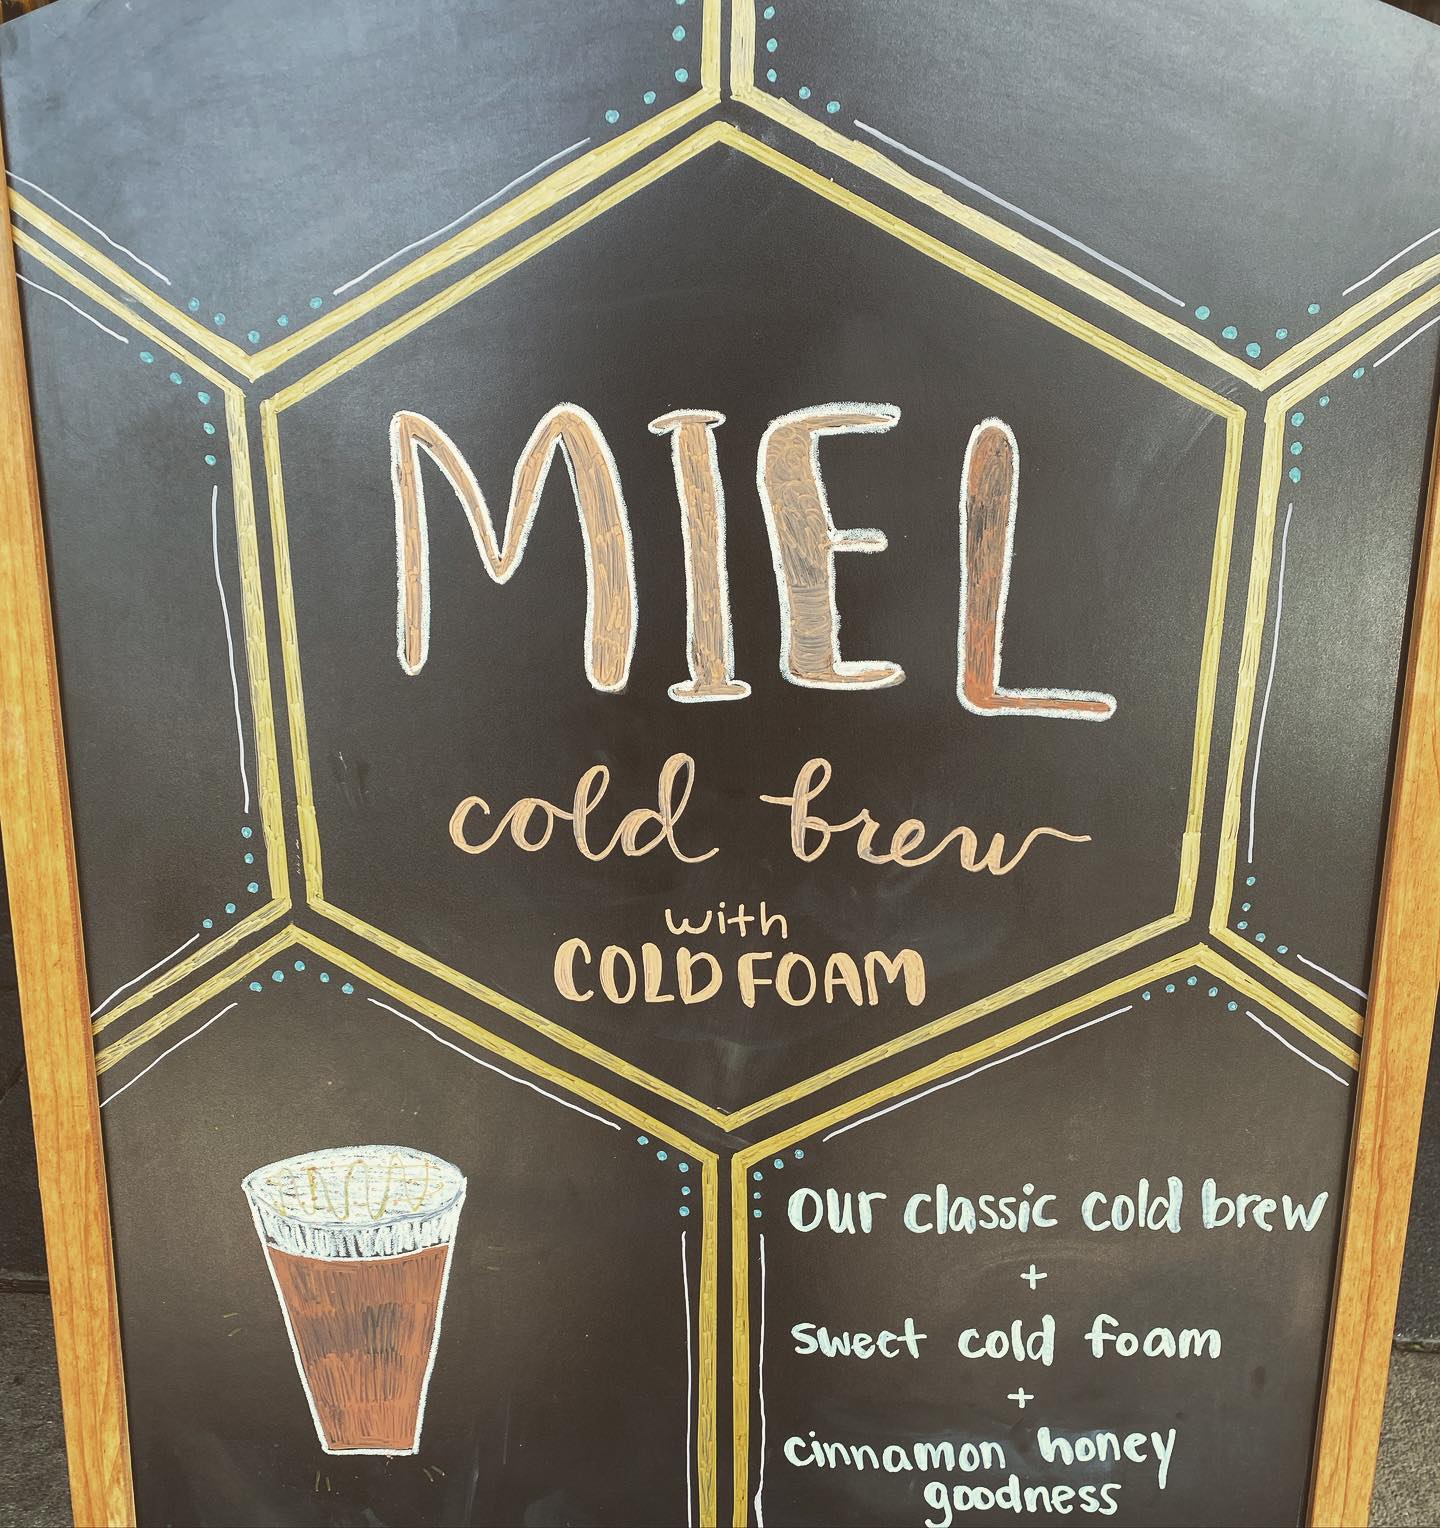 MIEL
cold brew
with
COLD FOAM
our classic cold brew
+
sweet cold foam
+
cinnamon honey
goodness